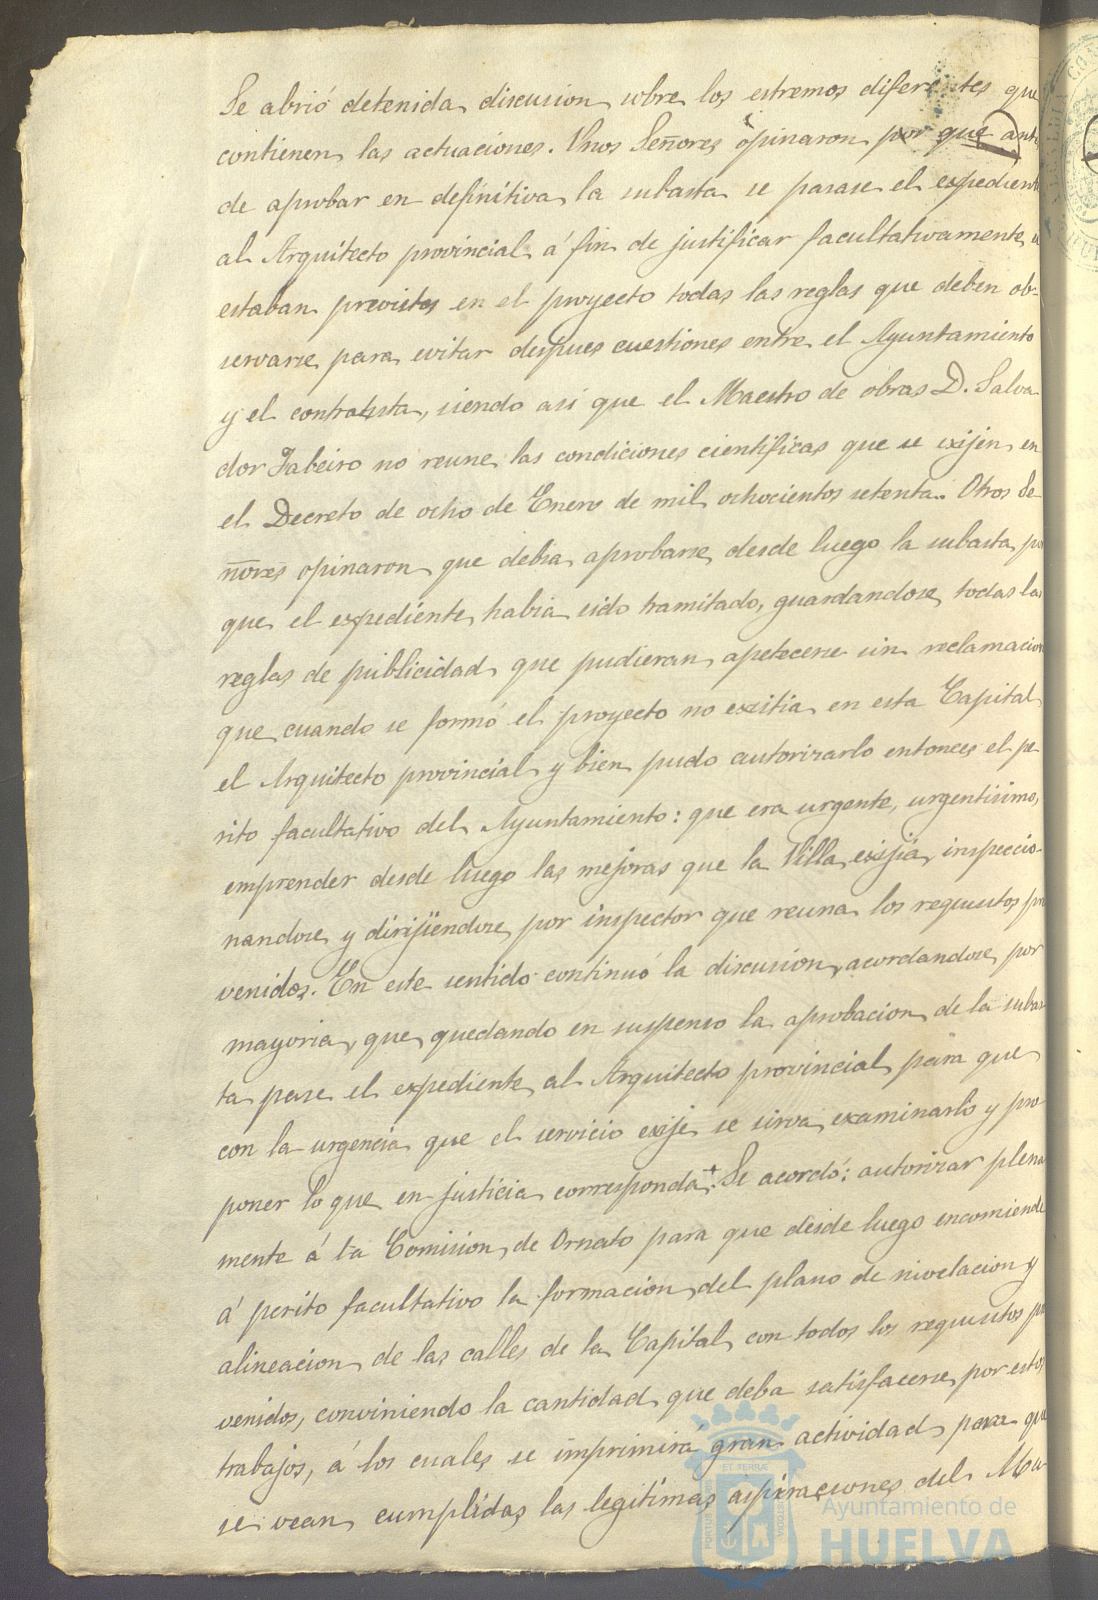 Se abrió detenida discusion sobre los estremos diferentes que
contienen las actuaciones. Unos Señores opinaron por que antes
de aprobar en definitiva la subasta se pasase el espediente
al Arquitecto provincial á fin de justificar facultativamente si
estaban previstas en el proyecto todas las reglas que deben ob-
servarse para evitar despues cuestiones entre el Ayuntamiento
y el contratista, siendo asi que el Maestro de obras D. Salva
dor Tabeiro no reune las condiciones cientificas que se exijen en
el Decreto de ocho de Enero de mil ochocientos setenta. Otros Se-
ñores opinaron que debia aprobarse desde luego la subasta, por
que el expediente habia sido tramitado, guardandose todas las
reglas de publicidad que pudieran apetecerse sin reclamacion
que cuando se formó el proyecto no existia en esta Capital
el Arquitecto provincial y bien pudo autorizarlo entonces el pe
rito facultativo del Ayuntamiento: que era urgente, urgentisimo,
emprender desde luego las mejoras que la Villa exijia, inspeccio-
nandose y dirijiendose por inspector que reuna los requisitos pre
venidos. En este sentido continuó la discusion, acordandose por
mayoria, que quedando en suspenso la aprobacion de la subas
ta pase el expediente al Arquitecto provincial para que
con la urgencia que el servicio exije se sirva examinarlo y pro-
poner lo que en justicia corresponda. + Se acordó: autorizar plena
mente á la Comision de Ornato para que desde luego encomiende
á perito facultativo la formacion del plano de nivelacion y
alineacion de las calles de la Capital con todos los requisitos pre
venidos, conviniendo la cantidad que deba satisfacerse por estos
trabajos, á los cuales se imprimirá gran actividad para que
se vean cumplidas las legitimas aspiraciones del Mu-
Ayuntamiento de
HUELVA